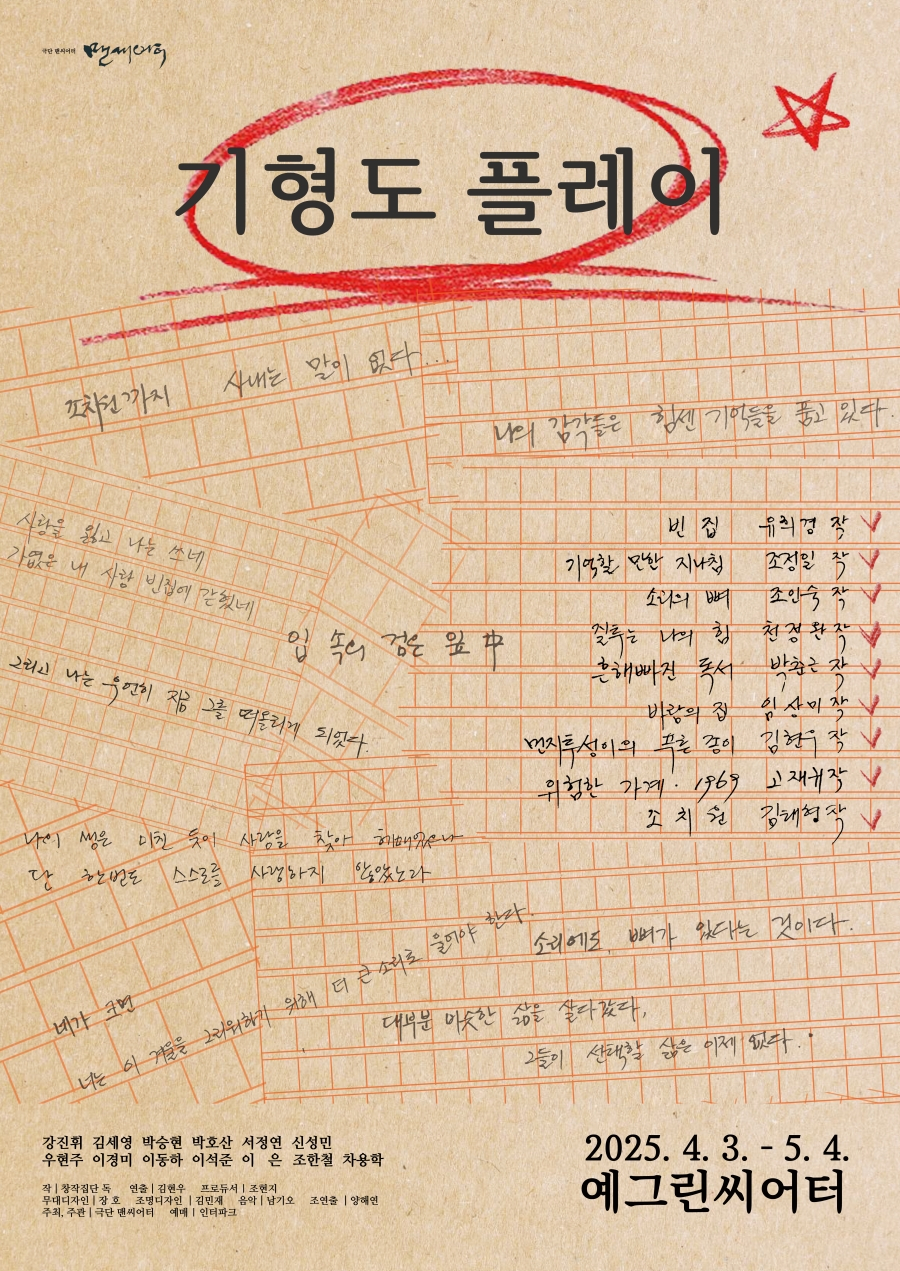 극단 맨씨어터 맨씨어터
기형도 플레이
조치원까지 사내는 말이 없다...
나의 감각들은 힘센 기억들을 품고 있다.
사랑을 잃고 나는 쓰네
가엾은 내 사랑 빈집에 갇혔네
입 속의 검은 잎 中
그리고 나는 우연히 지금 그를 떠올리게 되었다.
빈 집 유희경 작
기억할 만한 지나침 조정일 작
소리의 뼈 조인숙 작
질투는 나의 힘 천정완 작
흔해빠진 독서 박춘근 작
바람의 집 임상미 작
먼지투성이의 푸른 종이 김현우 작
위험한 가계·1969 고재귀 작
조 치 원 김태형 작
나의 생은 미친 듯이 사랑을 찾아 헤매었으나
단 한번도 스스로를 사랑하지 않았노라
소리에도 뼈가 있다는 것이다.
네가 크면
너는 이 겨울을 그리워하기 위해 더 큰 소리로 울어야 한다.
대부분 비슷한 삶을 살다갔다,
그들이 선택할 삶은 이제 없다..
강진휘 김세영 박승현 박호산 서정연 신성민
우현주 이경미 이동하 이석준 이 은 조한철 차용학
작 | 창작집단 독 연출 | 김현우 프로듀서 | 조현지
무대디자인 | 장 호 조명디자인 | 김민재 음악 | 남기오 조연출 | 양해연
주최, 주관 | 극단 맨씨어터 예매 | 인터파크
2025. 4. 3. - 5. 4.
예그린씨어터